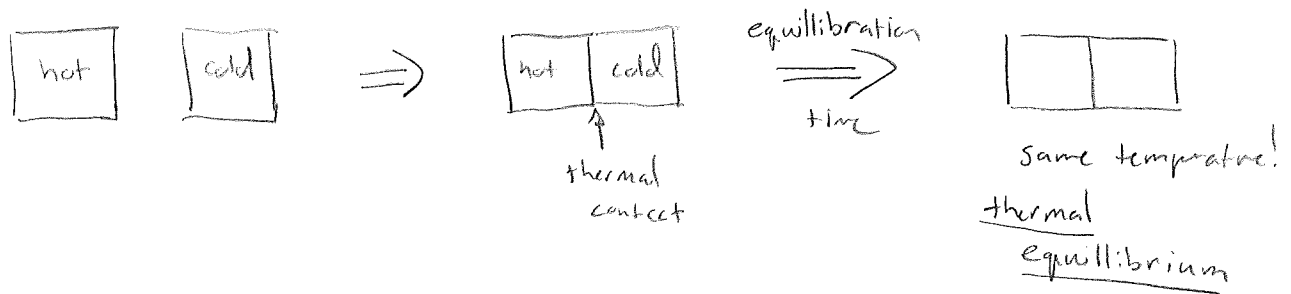 hot
cold
hot
cold
thermal
contact
equillibration
time
same temperature!
thermal
equillibrium